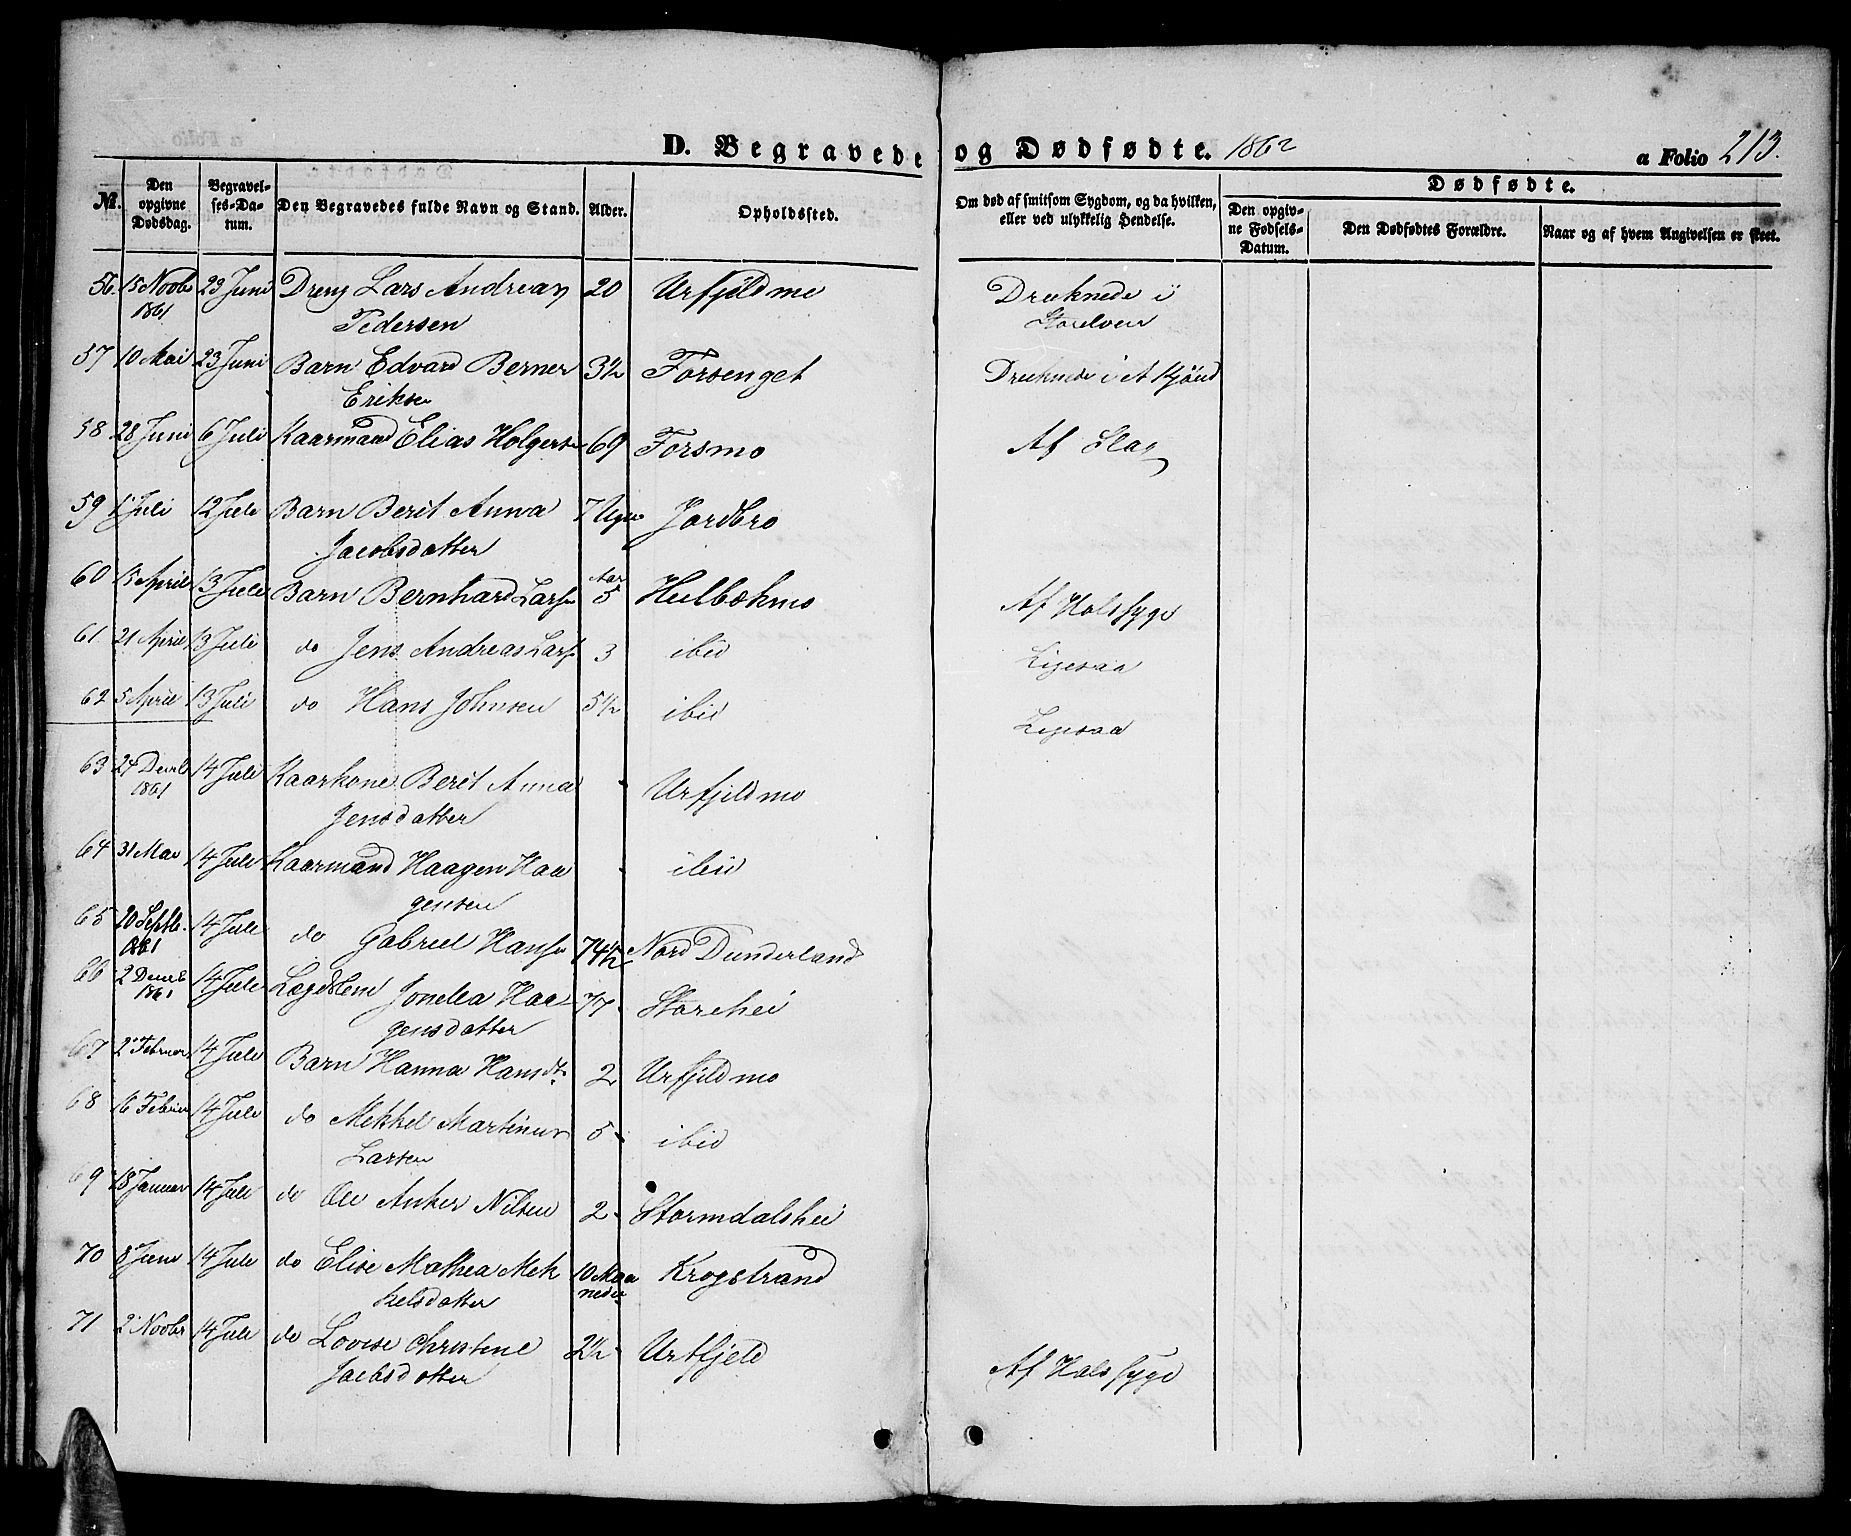 D. Begravede og Dødfødte. 1862
a Folio 213.
No. Den opgivne Dødsdag. Begravelses-Datum. Den Begravedes fulde Navn og Stand. Alder. Opholdssted. Om død af smitsom Sygdom, og da hvilken, eller ved ulykkelig Hendelse. Dødfødte.
Den opgivne Fødsels-Datum. Den Dødfødtes Forældre. Naar og af hvem Angivelsen er skeet.
56. 15 Novbr 23 Juni Dreng Lars Andreas 20 Urfjeldmo Druknede i
1861 Pedersen Storelven
57 10 Mai 23 Juni Barn Edvard Berner 3½ Forsenget Druknede i et Kjönd
Eriksen
58 28 Juni 6 Juli Kaarmand Elias Holgersen 69 Forsmo Af Slag
59 1 Juli 12 Juli Barn Berit Anna 7 Uger Jordbro
Jacobsdatter
60 15 April 13 Juli Barn Bernhard Larsen Aar 5 Heelbækmo Af Halssyge
61 21 April 13 Juli do Jens Andreas Lars. 3 ibid Ligesaa
62 5 April 13 Juli do Hans Johnsen 5½ ibid Ligesaa
63 27 Decbr 14 Juli Kaarkone Berit Anna - Urfjeldmo
1861 Jensdatter
64 31 Mai 14 Juli Kaarmand Haagen Haa - ibid
gensen
65 20 Septbr. 14 Juli do Gabriel Hansen 74½ Nord Dunderland
1861
66 2 Decbr 14 Juli Lægdslem Jonelia Haa- 77 - Storehei
1861 gensdatter
67 2 Februar 14 Juli Barn Hanna Hansdtr. 2 Urfjeldmo
68 16 Februar 14 Juli do Mekkel Martinus 5 - ibid
Larsen
69 18 Januar 14 Juli do Ole Anker Nilsen 2 - Stormdalshei
70 8 Juni 14 Juli do Elise Mathea Mek 10 Maa Krogstrand
kelsdatter neder
71 2 Novbr 14 Juli do Lovise Christene 2½ - Urtfjeld Af Halssyge
Jacobsdatter